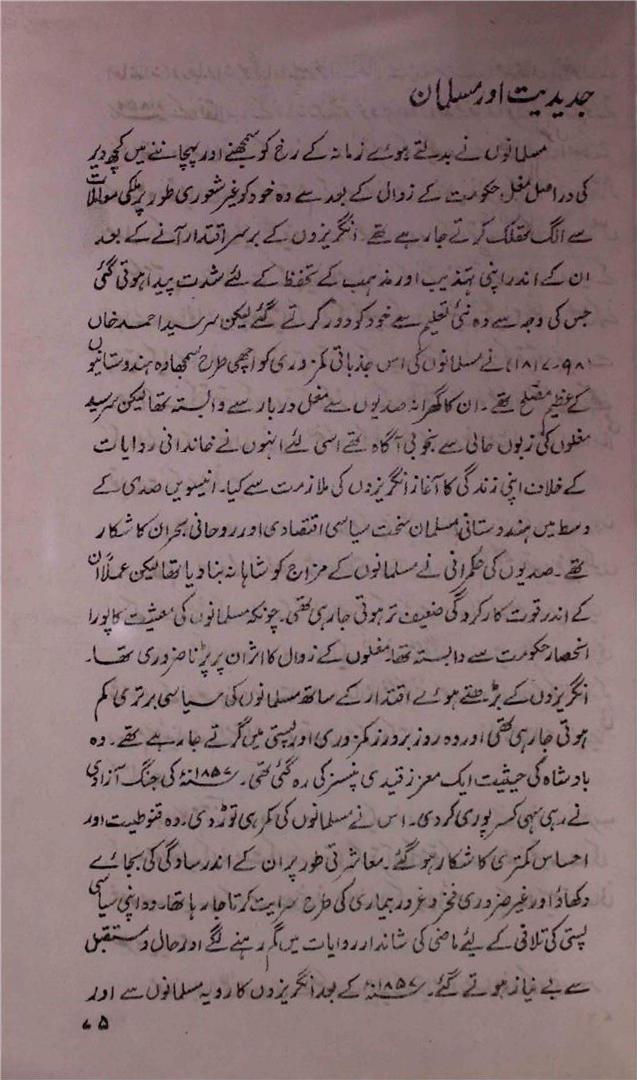 جدیدیت اور مسلمان
مسلمانوں نے بدلتے ہوئے زمانہ کے رخ کو سمجھنے اور پہچاننے میں کچھ دیر
کی دراصل مغل حکومت کے زوال کے بعد سے وہ خود کو غیر شعوری طور پر ملکی معاملات
سے الگ تھلگ کرتے جا رہے تھے۔ انگریزوں کے برسر اقتدار آنے کے بعد
ان کے اندر اپنی تہذیب اور مذہب کے تحفظ کے لئے شدت پیدا ہوتی گئی
جس کی وجہ سے وہ نئی تعلیم سے خود کو دور کرتے گئے لیکن سر سید احمد خاں
نے مسلمانوں کی اس جذباتی کمزوری کو اچھی طرح سمجھا وہ ہندوستانیوں
کے عظیم مصلح تھے۔ ان کا گھرانہ صدیوں سے مغل دربار سے وابستہ تھا لیکن سر سید
مغلوں کی زبوں حالی سے بخوبی آگاہ تھے اسی لئے انہوں نے خاندانی روایات
کے خلاف اپنی زندگی کا آغاز انگریزوں کی ملازمت سے کیا۔ انیسویں صدی کے
وسط میں ہندوستانی مسلمان سخت سیاسی اقتصادی اور روحانی بحران کا شکار
تھے۔ صدیوں کی حکمرانی نے مسلمانوں کے مزاج کو شاہانہ بنا دیا تھا لیکن عملاً ان
کے اندر قوت کارکردگی ضعیف تر ہوتی جا رہی تھی۔ چونکہ مسلمانوں کی معیشت کا پورا
انحصار حکومت سے وابستہ تھا۔ مغلوں کے زوال کا اثر ان پر پڑنا ضروری تھا۔
انگریزوں کے بڑھتے ہوئے اقتدار کے ساتھ مسلمانوں کی سیاسی برتری کم
ہوتی جا رہی تھی اور وہ روز بروز کمزوری اور پستی میں گرتے جا رہے تھے۔ وہ
بادشاہ کی حیثیت ایک معزز قیدی پنسنر کی رہ گئی تھی۔ ۱۸۵۷ء کی جنگ آزادی
نے رہی سہی کسر پوری کر دی۔ اس نے مسلمانوں کی کمر ہی توڑ دی۔ وہ قنوطیت اور
احساس کمتری کا شکار ہو گئے۔ معاشرتی طور پر ان کے اندر سادگی کی بجائے
دکھاوا اور غیر ضروری فخر و غرور بیماری کی طرح سرایت کرتا جا رہا تھا۔ وہ اپنی سیاسی
پستی کی تلافی کے لیئے ماضی کی شاندار روایات میں گم رہنے لگے اور حال و مستقبل
سے بے نیاز ہوتے گئے۔ ۱۸۵۷ء کے بعد انگریزوں کا رویہ مسلمانوں سے اور
۷۵